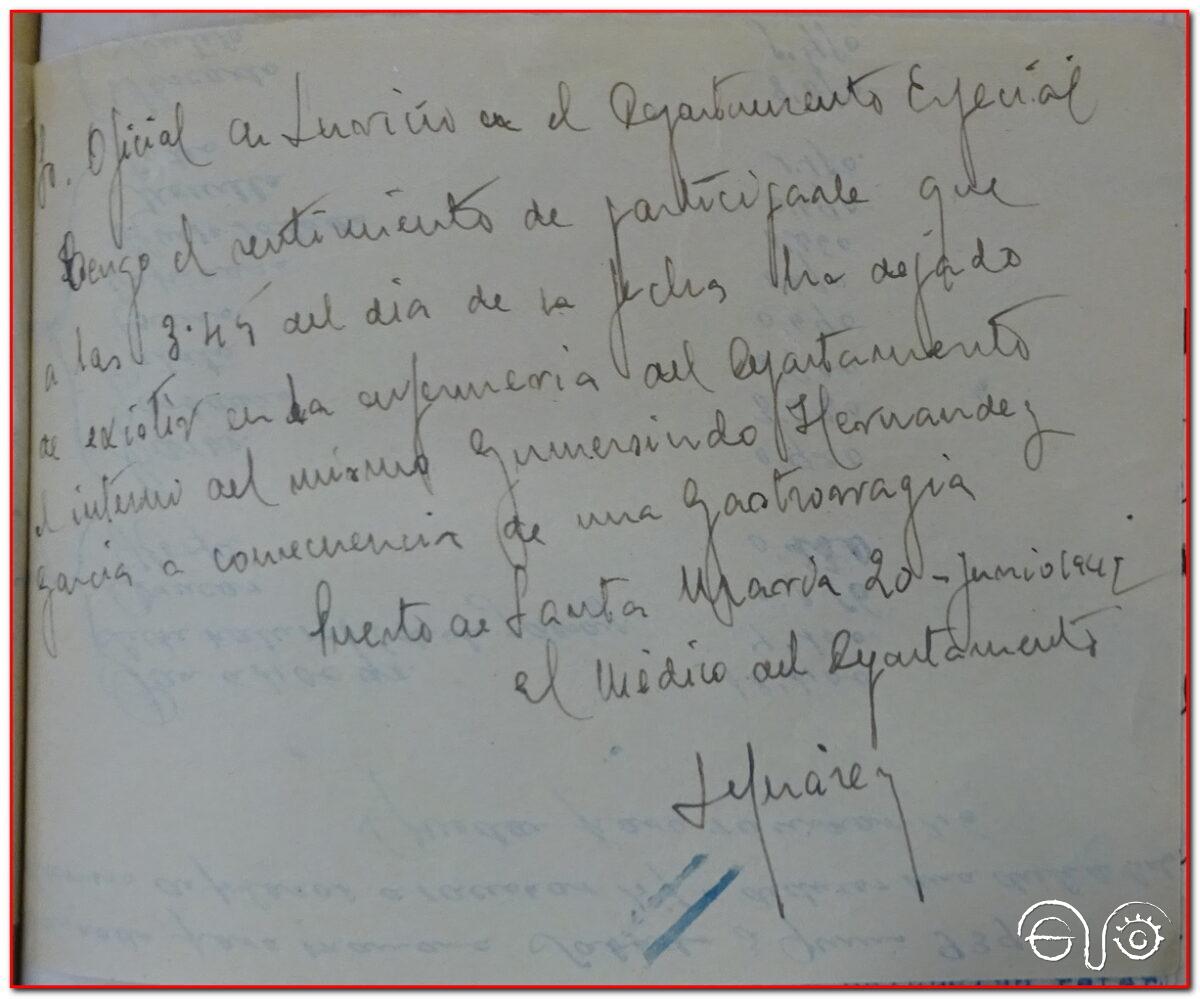 Sr. Oficial de Servicio en el Departamento Especial
Tengo el sentimiento de participarle que
a las 3.45 del dia de la fecha ha dejado
de existir en la enfermeria del Departamento
el interno del mismo Gumersindo Hernandez
Garcia a consecuencia de una Gastrorragia
Puerto de Santa Maria 20 - Junio 1941
El Médico del Departamento